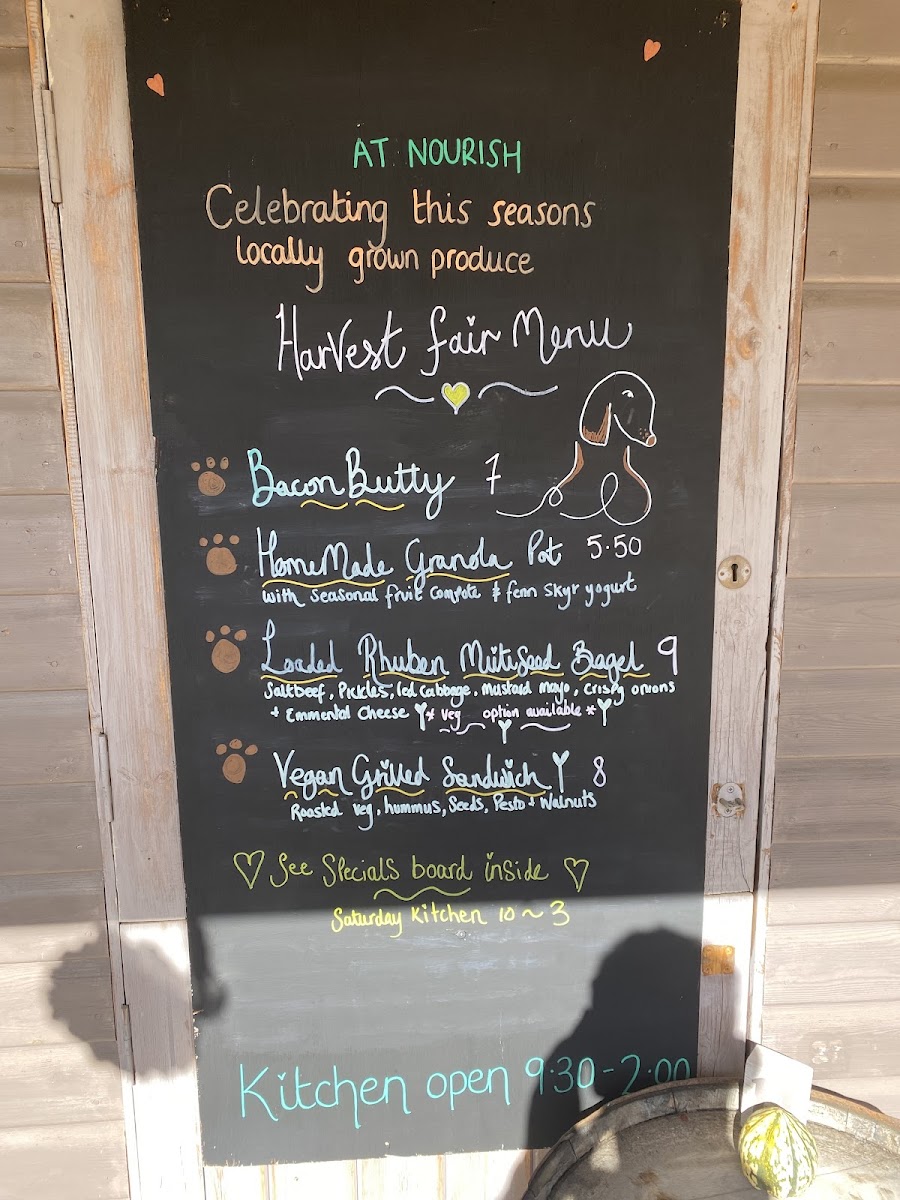 AT NOURISH
Celebrating this seasons
locally grown produce
Harvest fair Menu
Bacon Butty 7
HomeMade Granola Pot 5.50
with Seasonal fruit Compote & fenn Skyr yogurt
Loaded Rhuben MultiSeed Bagel 9
Saltbeef, Pickles, led Cabbage, mustard mayo, Crispy onions
+ Emmental Cheese * veg option available *
Vegan Grilled Sandwich 8
Roasted veg, hummus, Seeds, Pesto + Walnuts
See Specials board inside
Saturday Kitchen 10 ~ 3
Kitchen open 9.30 - 2.00